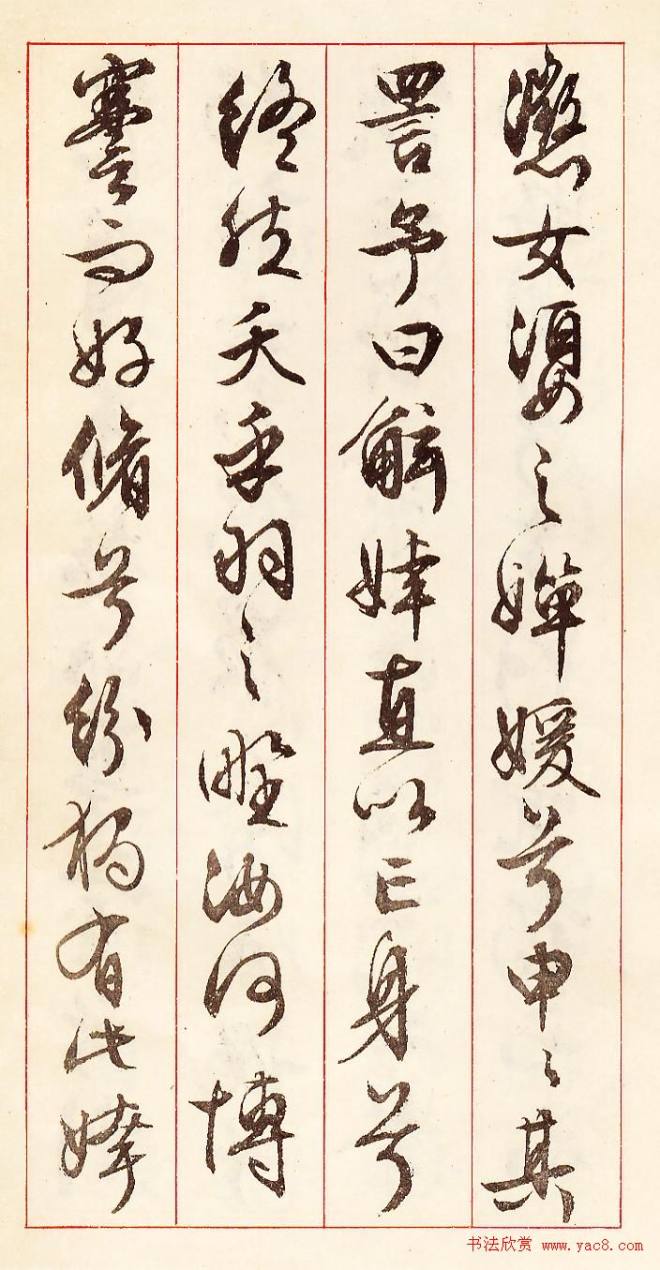 懲女嬃之嬋媛兮申〻其
詈予曰鮌婞直以亡身兮
終然夭乎羽之野汝何博
謇而好脩兮紛獨有此姱
书法欣赏 www.yac8.com